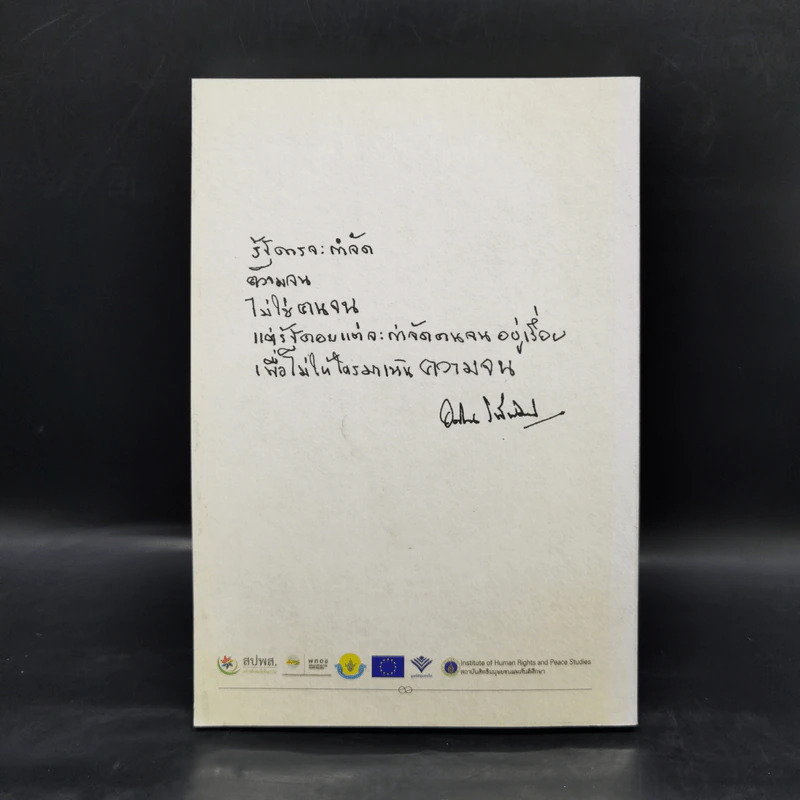 รัฐควรจะกำจัด
ความจน
ไม่ใช่คนจน
แต่รัฐคอยแต่จะกำจัดคนจนอยู่เรื่อย
เพื่อไม่ให้ใครมาเห็นความจน
สปพส.
พคอช
Institute of Human Rights and Peace Studies
สถาบันสิทธิมนุษยชนและสันติศึกษา